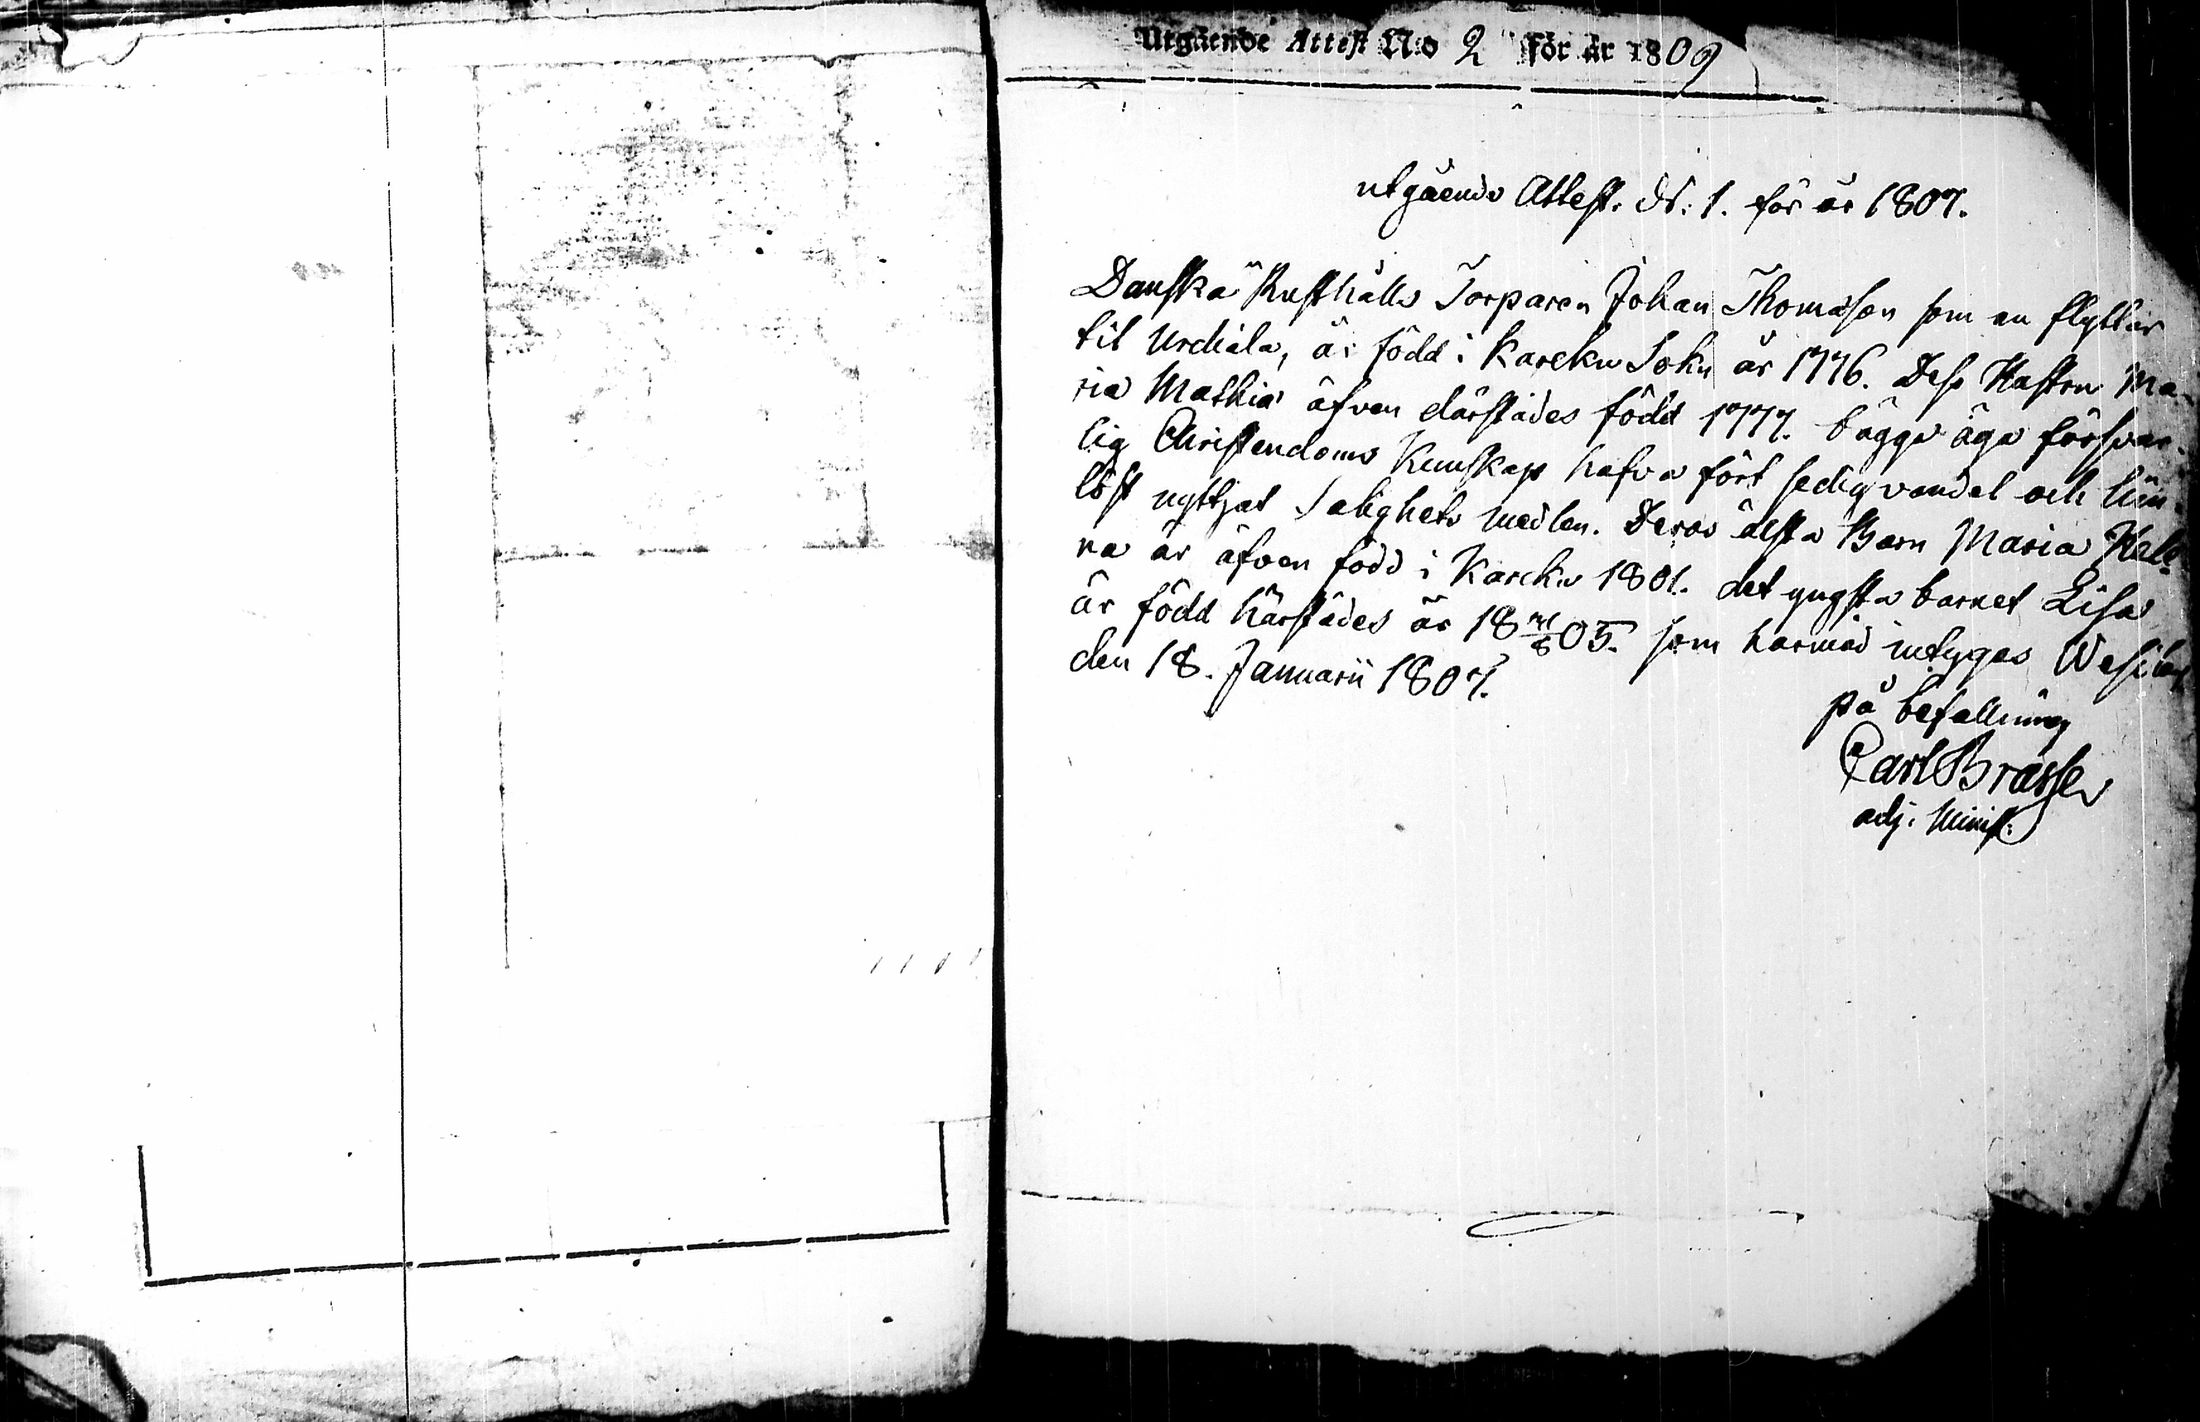 Utgående Attest N:o 2 för år 1809
utgående Attest. N: 1. för år 1807.
Danskä Rusthålls Torparen Johan Thomasson som nu flyttar
til Urdiala, är född i Karcku Sokn år 1776. Dess Hustru Ma-
ria Mathia äfven därstädes född 1777. bägge äga försvar-
lig Christendoms Kunskap hafva fört sedig vandel och lim-
löst nyttjat Salighets medlen. Deras älsta Barn Maria
na är äfven född i Karcku 1801. det yngsta barnet Lisa
är född härstädes år 18 05. som härmed intygas
den 18. Januarii 1807.
på befallning
Carl
adj. Minist.